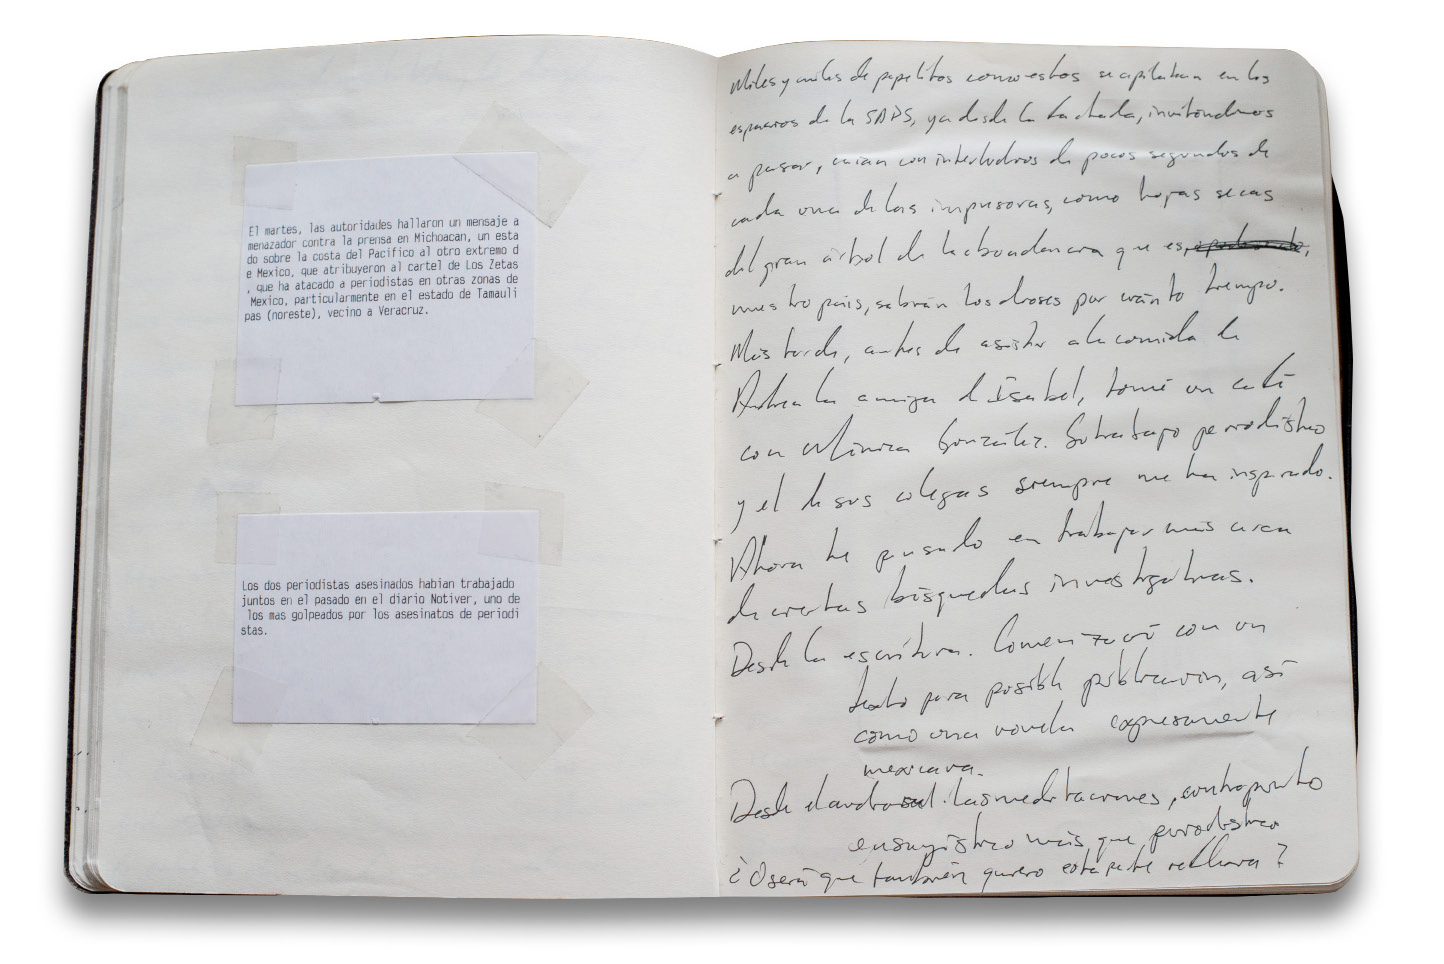 El martes, las autoridades hallaron un mensaje a
menazador contra la prensa en Michoacan, un esta
do sobre la costa del Pacifico al otro extremo d
e Mexico, que atribuyeron al cartel de Los Zetas
, que ha atacado a periodistas en otras zonas de
Mexico, particularmente en el estado de Tamauli
pas (noreste), vecino a Veracruz.
Los dos periodistas asesinados habian trabajado
juntos en el pasado en el diario Notiver, uno de
los mas golpeados por los asesinatos de periodi
stas.
Miles y miles de papelitos como estos se apilaban en los
espacios de la SAPS, ya desde la fachada, invitándonos
a pasar, caían con interludios de pocos segundos de
cada una de las impresoras, como hojas secas
del gran árbol de la abundancia que es,
nuestro país, sabrán los dioses por cuánto tiempo.
Más tarde, antes de asistir a la comida de
Andrea la amiga d Isabel, tomé un café
con Mónica González. Su trabajo periodístico
y el de sus colegas siempre me ha inspirado.
Ahora he pensado en trabajar más cerca
de ciertas búsquedas investigativas.
Desde la escritura. Comenzaré con un
texto para posible publicación, así
como una novela expresamente
mexicana.
Desde el audiovisual. Las meditaciones, contrapunto
ensayístico más que periodístico
¿O será que también quiero